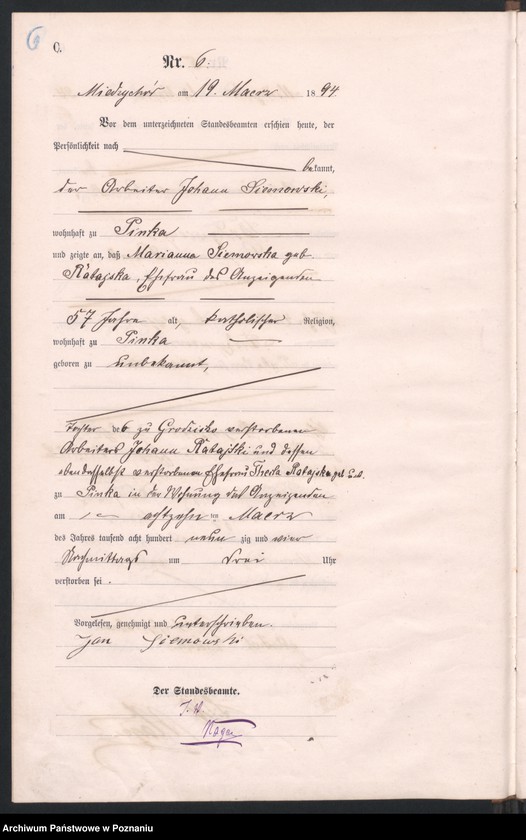 6
C.
Nr. 6.
Miedzychód am 19. Maerz 1894.
Vor dem unterzeichneten Standesbeamten erschien heute, der
Persönlichkeit nach
bekannt,
der Arbeiter Johann Siemowski,
wohnhaft zu Pinka
und zeigte an, daß Marianna Siemowska geb.
Ratajska, Ehefrau des Anzeigenden
57 Jahre alt, katholischer Religion,
wohnhaft zu Pinka
geboren zu unbekannt,
Tochter des zu Grodzisko verstorbenen
Arbeiters Johann Ratajski und dessen
ebendaselbst verstorbenen Ehefrau Thecla Ratajska geb.
zu Pinka in der Wohnung des Anzeigenden
am achtzehn ten Maerz
des Jahres tausend acht hundert neun zig und vier
Nachmittags um drei Uhr
verstorben sei.
Vorgelesen, genehmigt und unterschrieben.
Jan Siemowski
Der Standesbeamte.
Archiwum Państwowe w Poznaniu